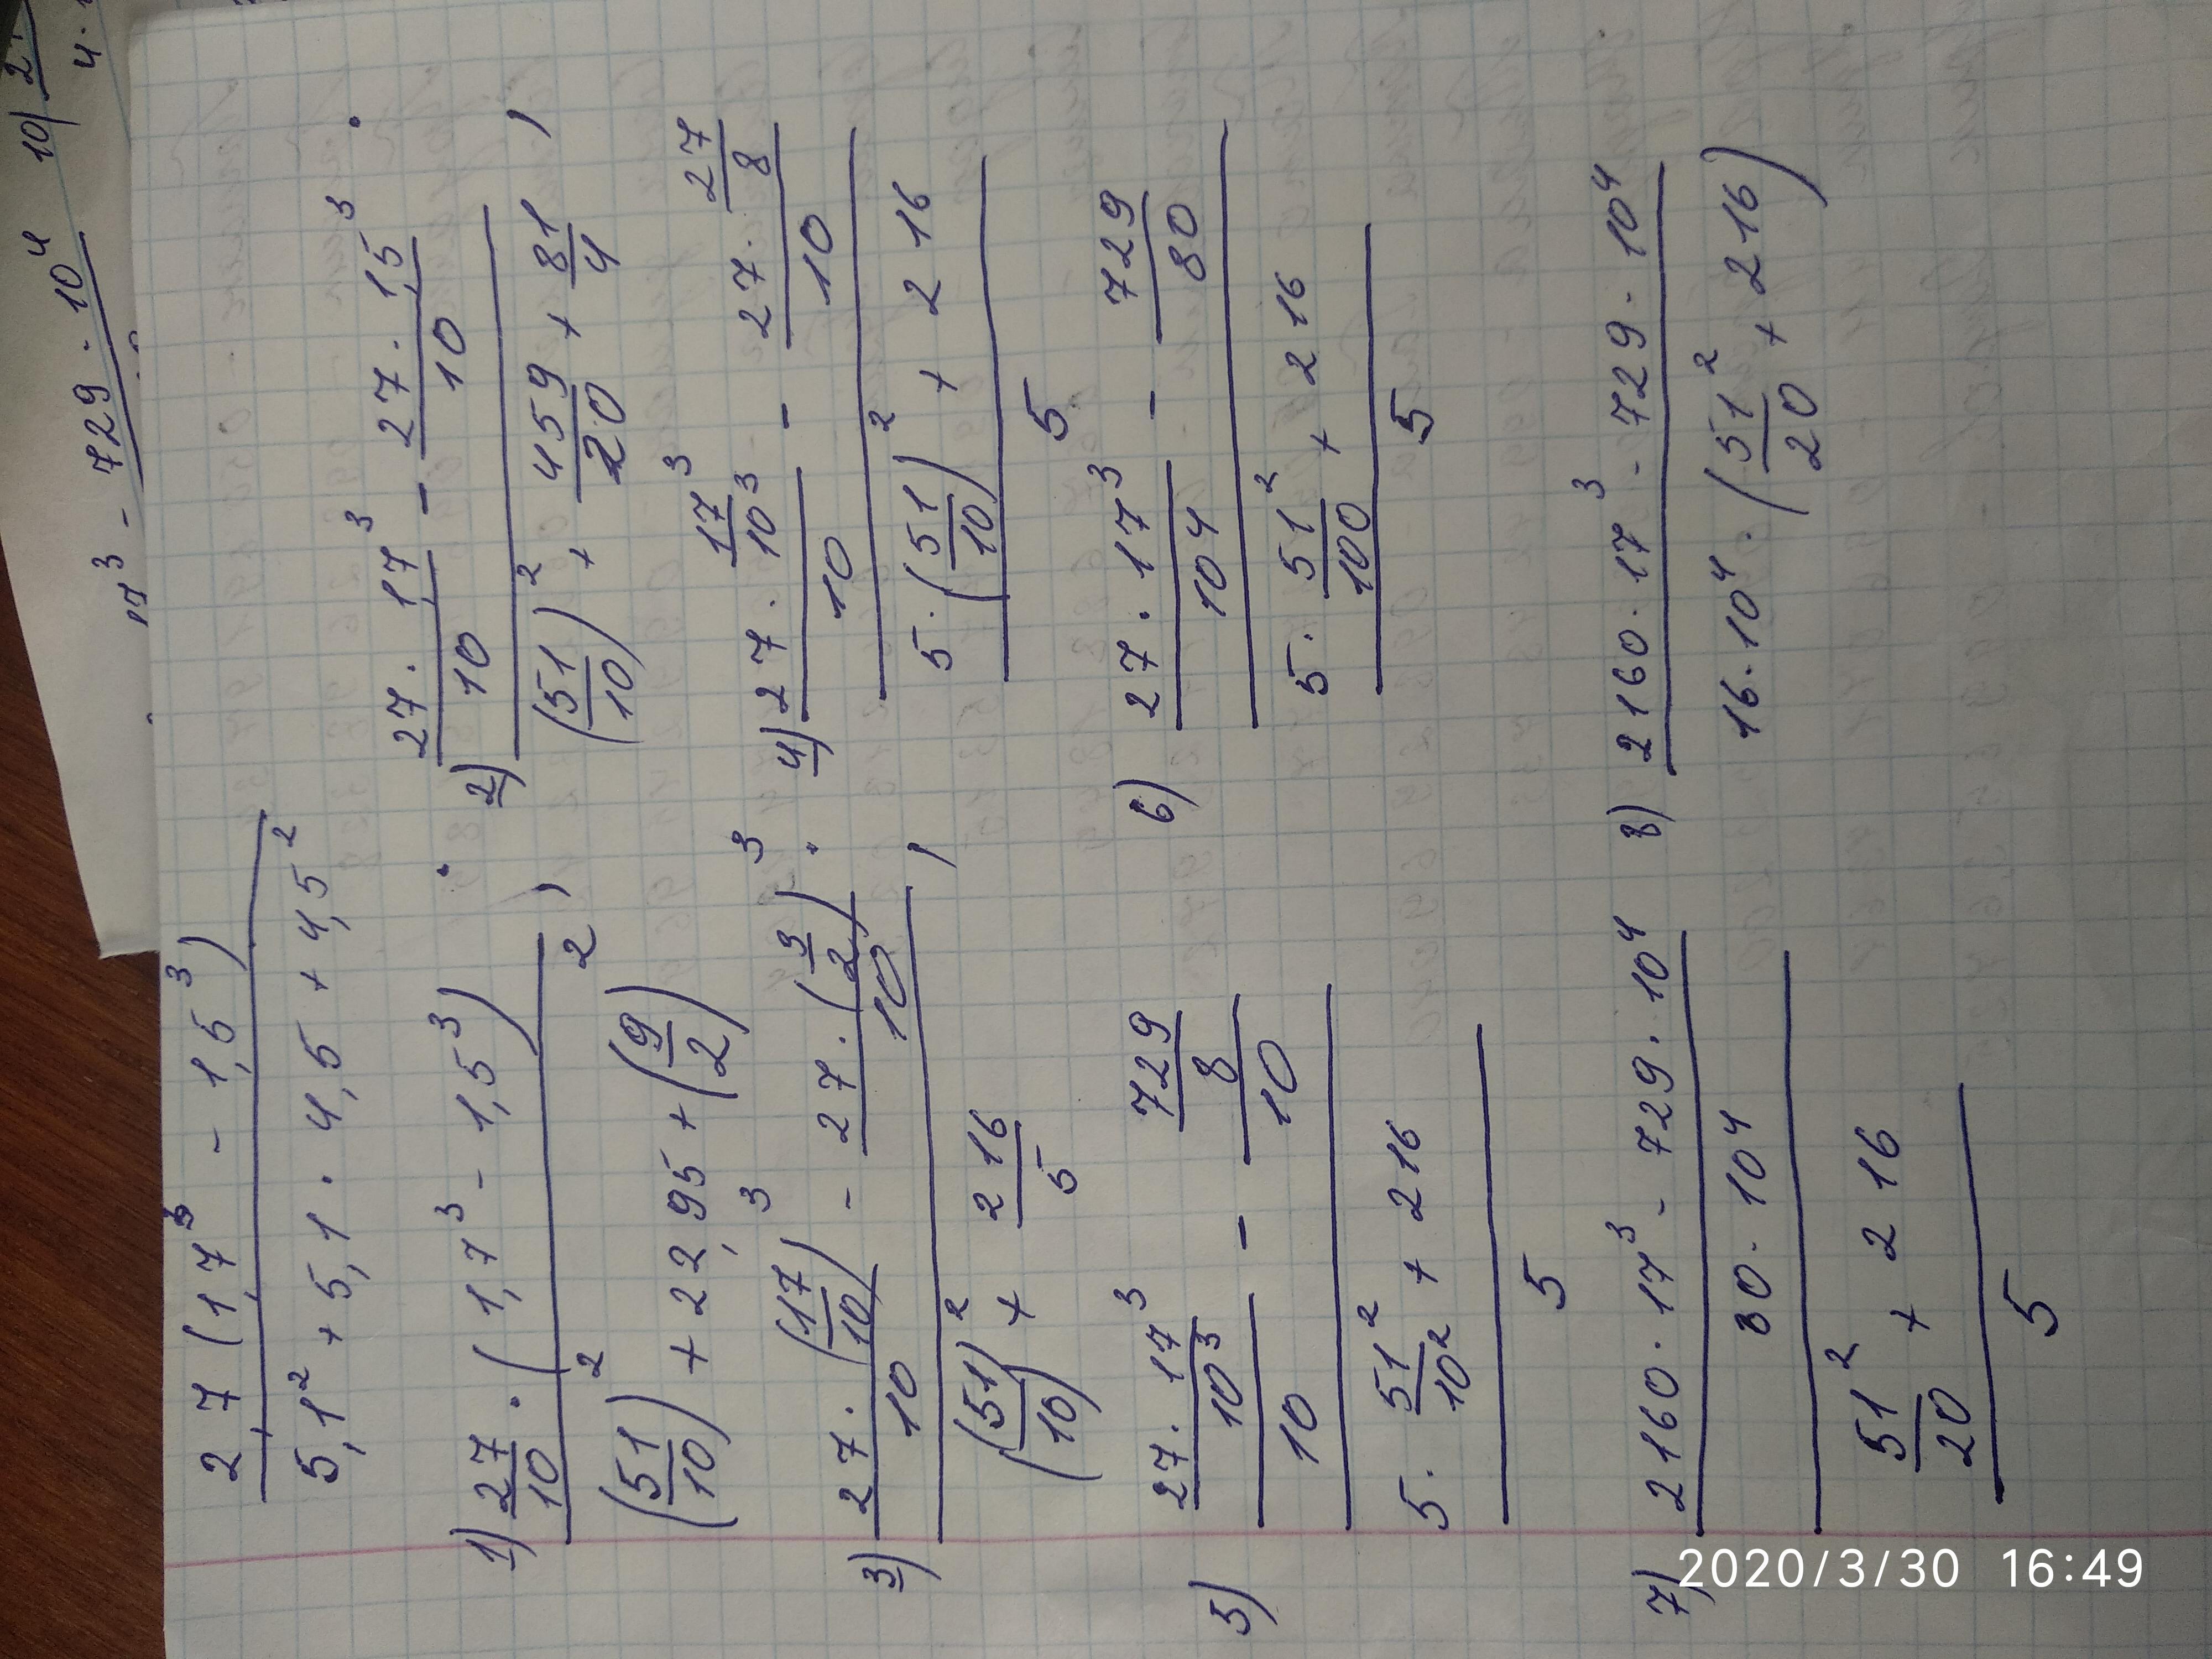 2,7 (1,7³ - 1,5³)
5,1² + 5,1 · 4,5 + 4,5²
1) 27/10 · (1,7³ - 1,5³)
(51/10)² + 22,95 + (9/2)²,
2) 27 · 1,7³/10 - 27 · 1,5³/10
(51/10)² + 459/20 + 81/4,
3) 27 · (17/10)³/10 - 27 · (3/2)³/10
(51/10)² + 216/5,
4) 27 · 17³/10³/10 - 27 · 27/8/10
5 · (51/10)² + 216
5
5) 27 · 17³/10³/10 - 729/8/10
5 · 51²/10² + 216
5
6) 27 · 17³/10⁴ - 729/80
5 · 51²/100 + 216
5
7) 2160 · 17³ - 729 · 10⁴
80 · 10⁴
51²/20 + 216
5
8) 2160 · 17³ - 729 · 10⁴
16 · 10⁴ · (51²/20 + 216)
17³ - 729 · 10⁴
10)
2020/3/30 16:49